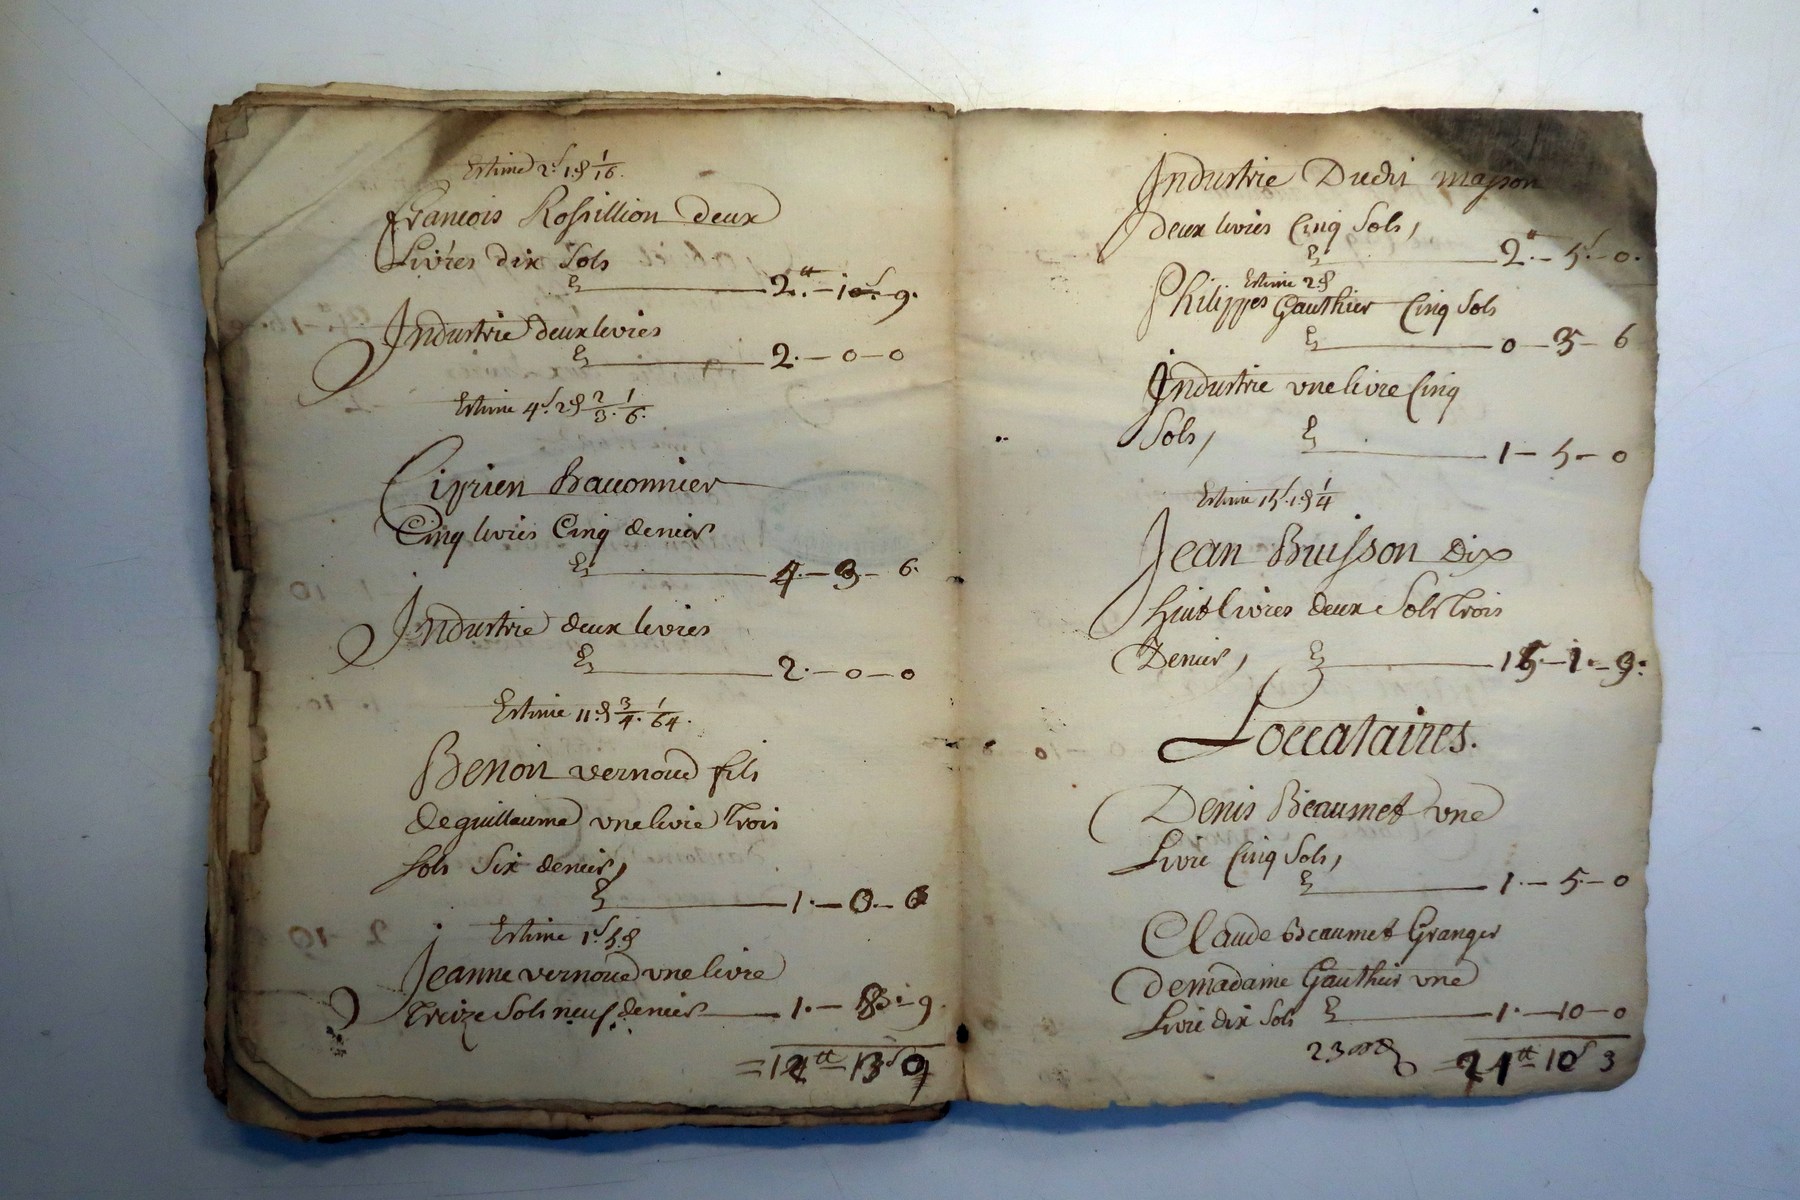 Estime 2s 1 & 1/16.
francois Rossillion deux
Livres dix Sols
2.tt–10s–9.
Industrie deux livres
2.–0–0
Estime 4s. 2 & 2/3. 1/6.
Ciprien Bauonnier
Cinq livres Cinq denier
4.–3–6.
Industrie deux livres
2.–0–0
Estime 11 & 3/4. 1/64.
Benoit vernoud fils
de guillaume une livre trois
sols Six denier,
1.–0–6
Estime 1s. 5 &
Jeanne vernoud une livre
treize Sols neuf denier 1.– –9
=12tt 13s 9
Industrie Dudit masson
deux livres Cinq Sols,
2.tt–5s–0.
Estime 2 &
Philippes Gauthier Cinq Sols
0–3–6
Industrie une livre Cinq
Sols,
1–5–0
Estime 15s. 1 & 1/4
Jean Buisson dix
huit livres deux Sols trois
Denier,
15–1–9.
Loccataires.
Denis Beaumet une
Livre Cinq Sols,
1.–5–0
Claude Beaumet Granger
de madame Gauthier une
Livre dix Sols 1.–10–0
=21tt 10s 3